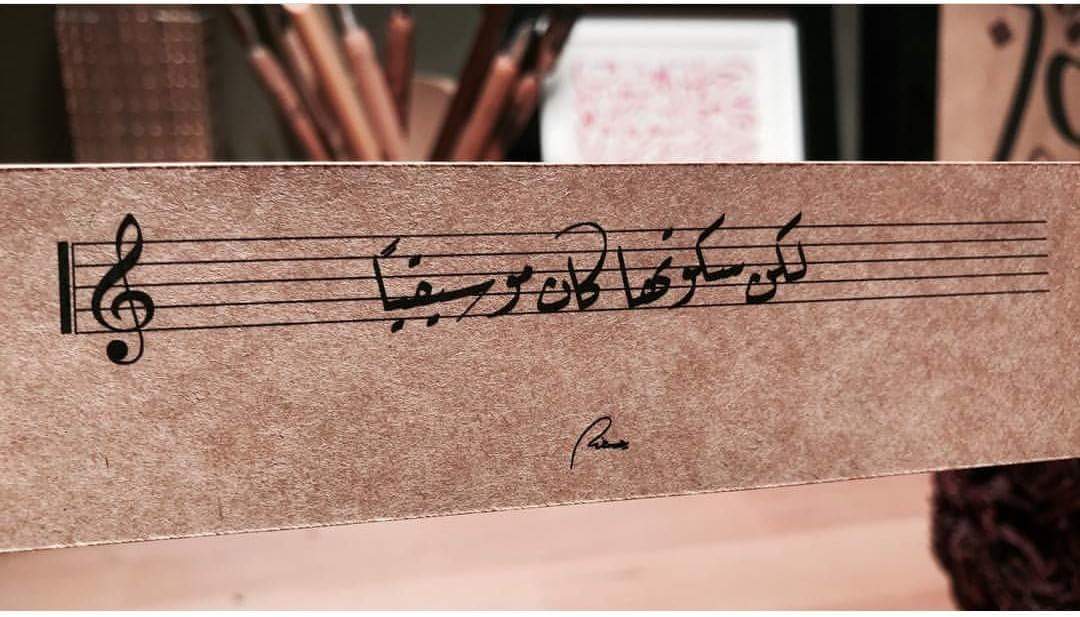 لكن سكوتها كان موسيقياً